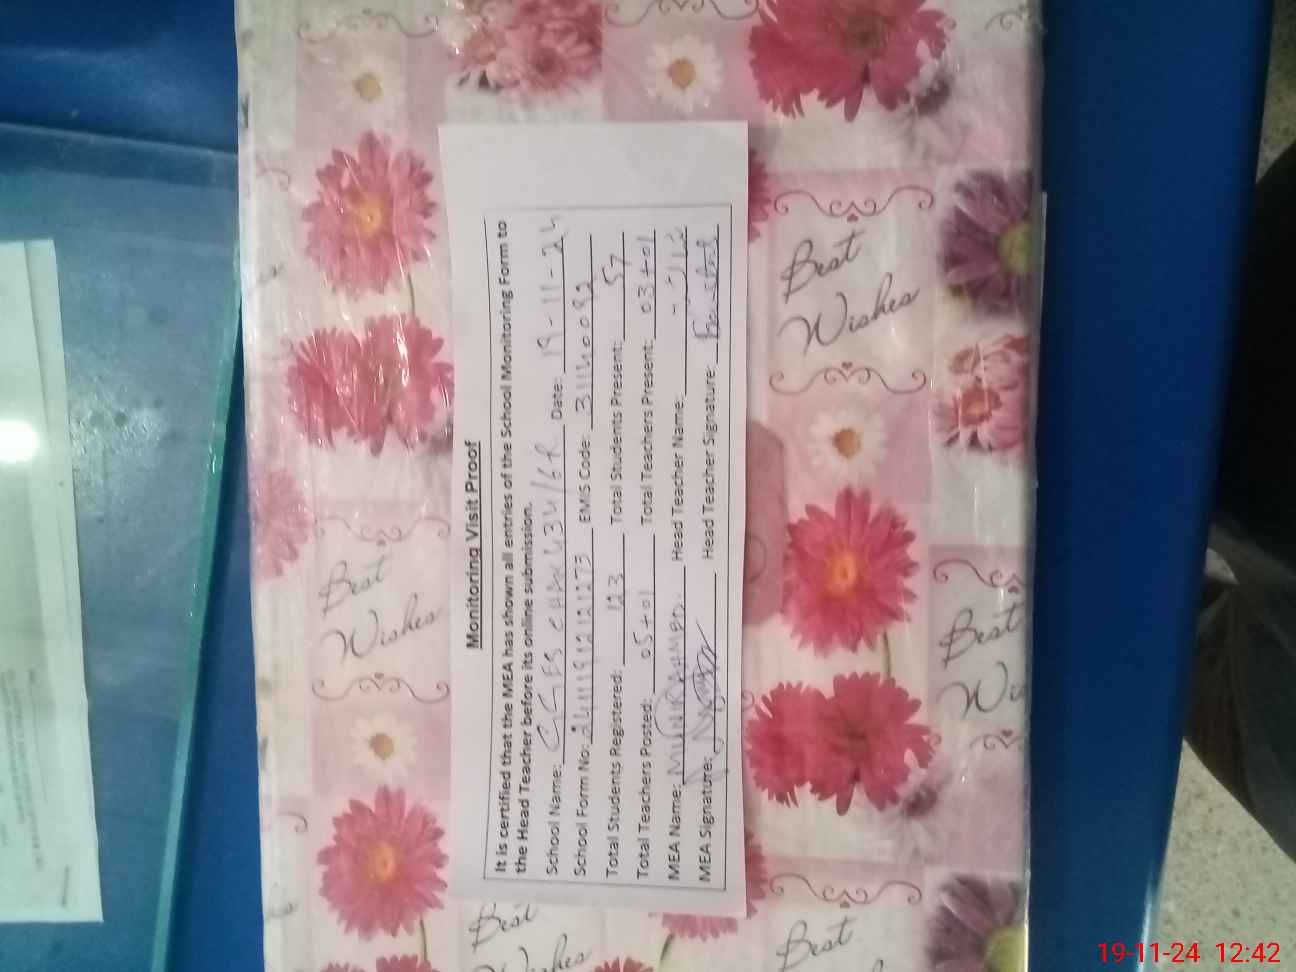 Monitoring Visit Proof
It is certified that the MEA has shown all entries of the School Monitoring Form to
the Head Teacher before its online submission.
School Name: GGES CHAK 434/6R Date: 19-11-24
School Form No: EMIS Code: 31140092
Total Students Registered: 123 Total Students Present: 57
Total Teachers Posted: 05+01 Total Teachers Present: 03+01
MEA Name: MUNIR AHMED. Head Teacher Name:
MEA Signature: Head Teacher Signature:
Best
Wishes
Best
Wishes
Best
Wishes
Best
Best
Wi
19-11-24 12:42